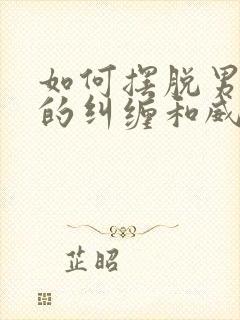 如何摆脱男
的纠缠和威
芷昭